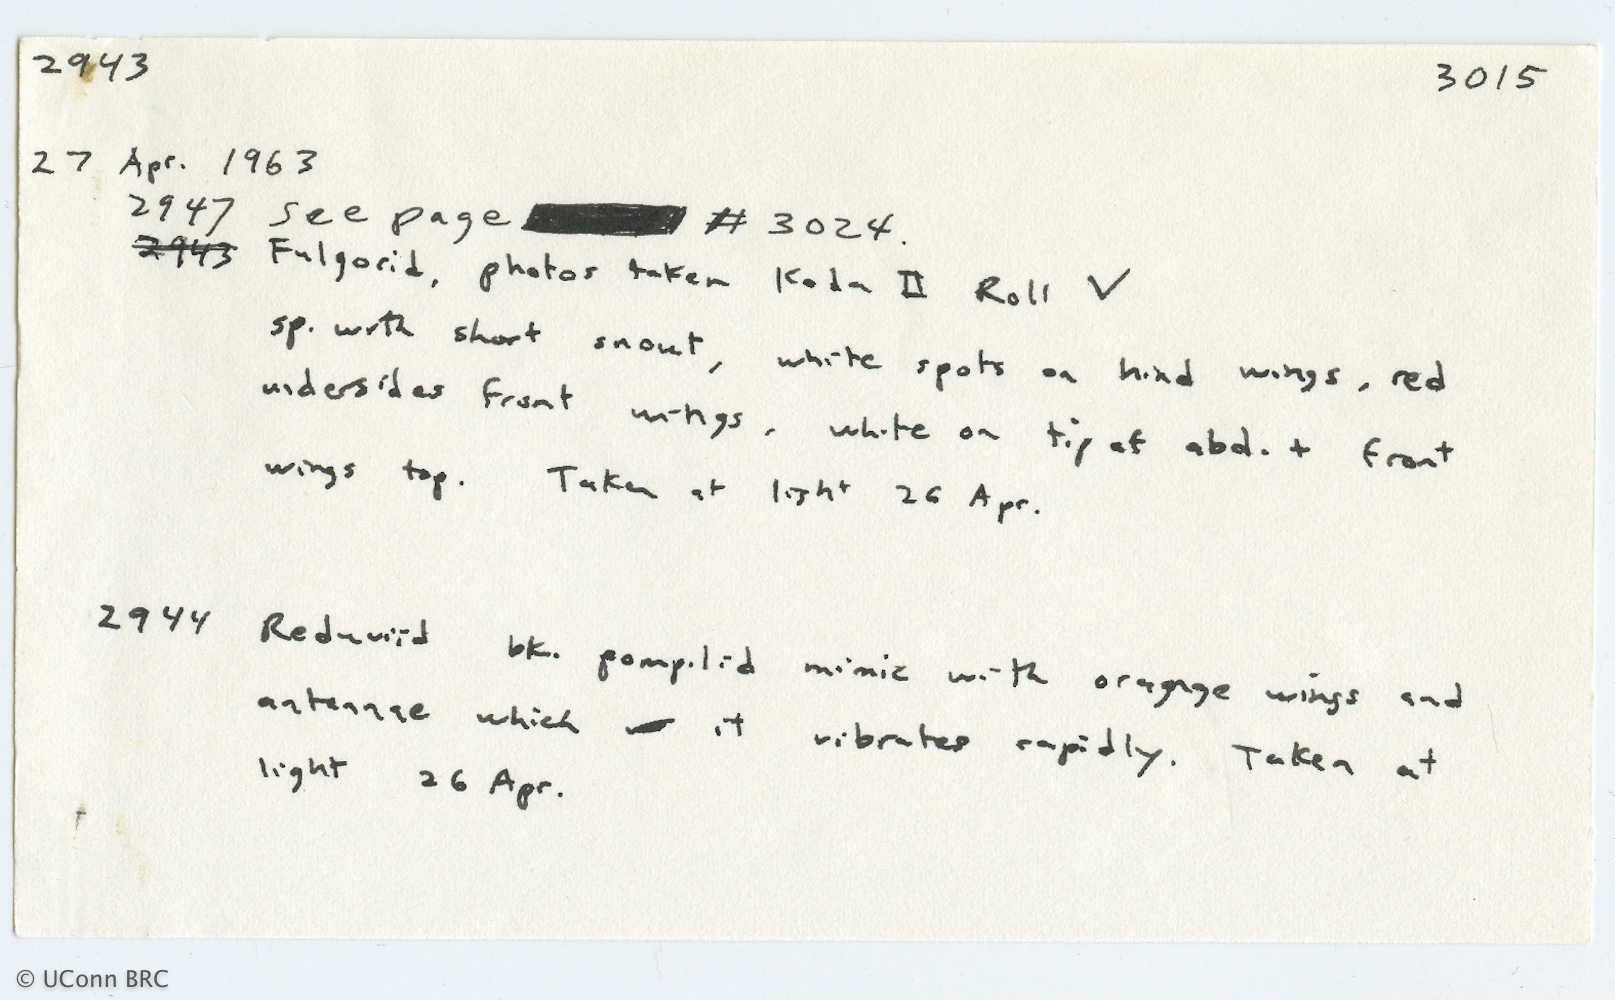 2943 3015
27 Apr. 1963
2947 see page # 3024.
2943 Fulgorid, photos taken Koda II Roll V
sp. with short snout, white spots on hind wings, red
undersides front wings, white on tip of abd. + front
wings top. Taken at light 26 Apr.
2944 Reduviid bk. pompilid mimic with oragnge wings and
antennae which it vibrates rapidly. Taken at
light 26 Apr.
© UConn BRC